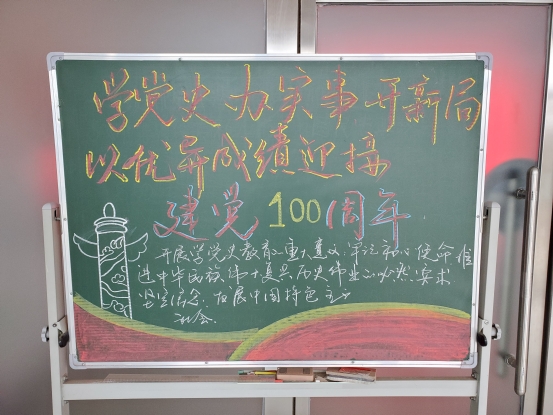 学党史办实事开新局
以优异成绩迎接
建党100周年
开展学党史教育重大意义:牢记初心使命推
进中华民族伟大复兴历史伟业必然要求
坚定信念.发展中国特色主义
社会